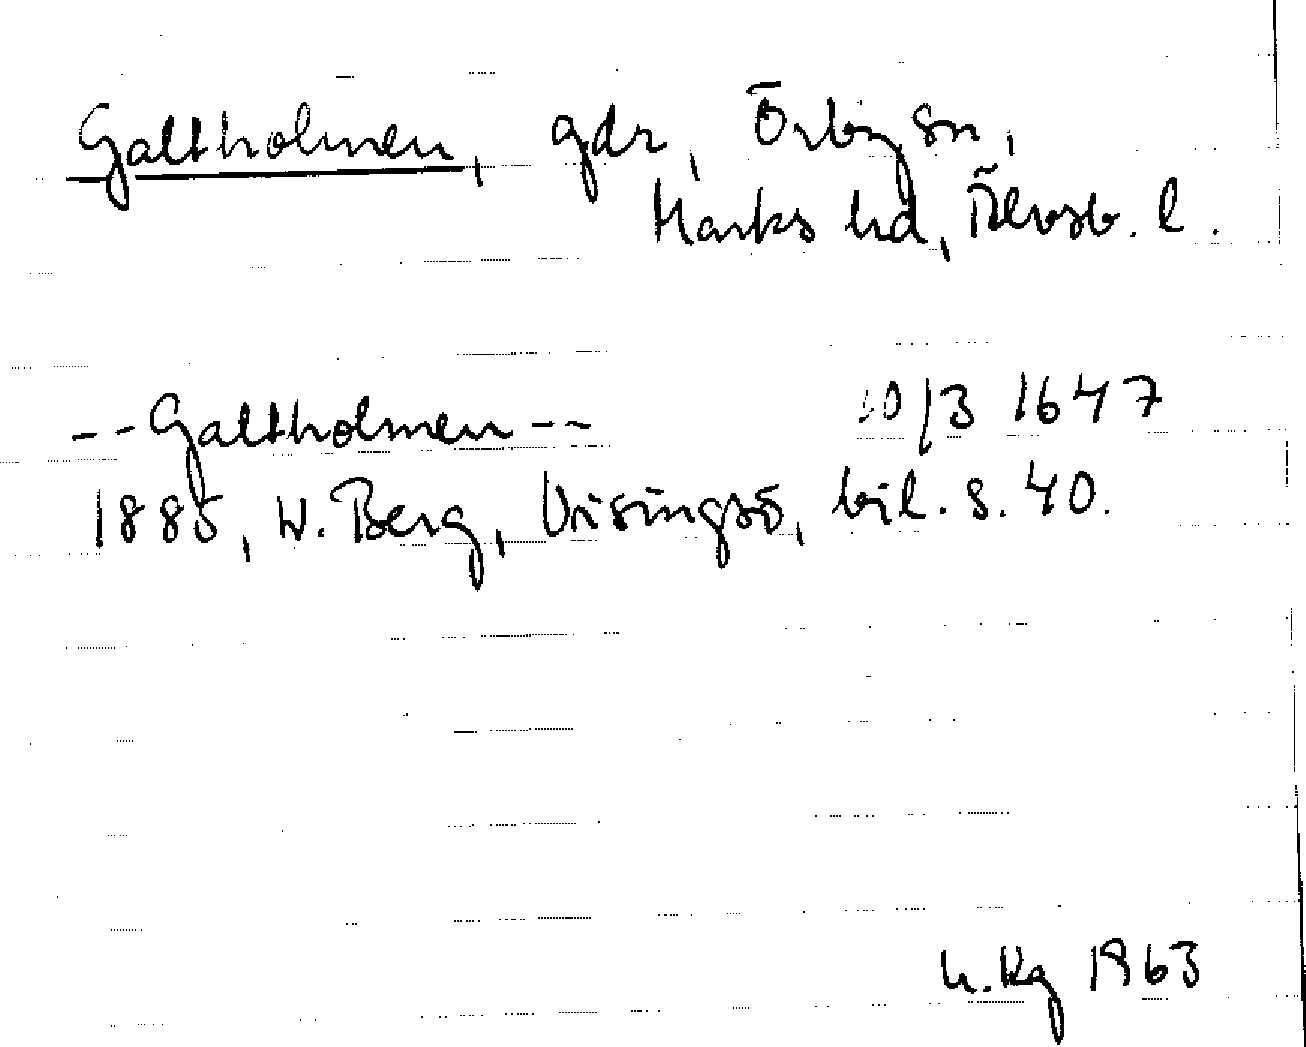 Galtholmen, gdr, Örby sn,
Marks hd, Älvsb. l.
--Galtholmen-- 10/3 1647
1885, W. Berg, Visingsö, bil. s. 40.
1963